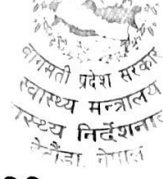 बागमती प्रदेश सरकार
स्वास्थ्य मन्त्रालय
स्थ्य निर्देशना
हेटौंडा, नेपाल